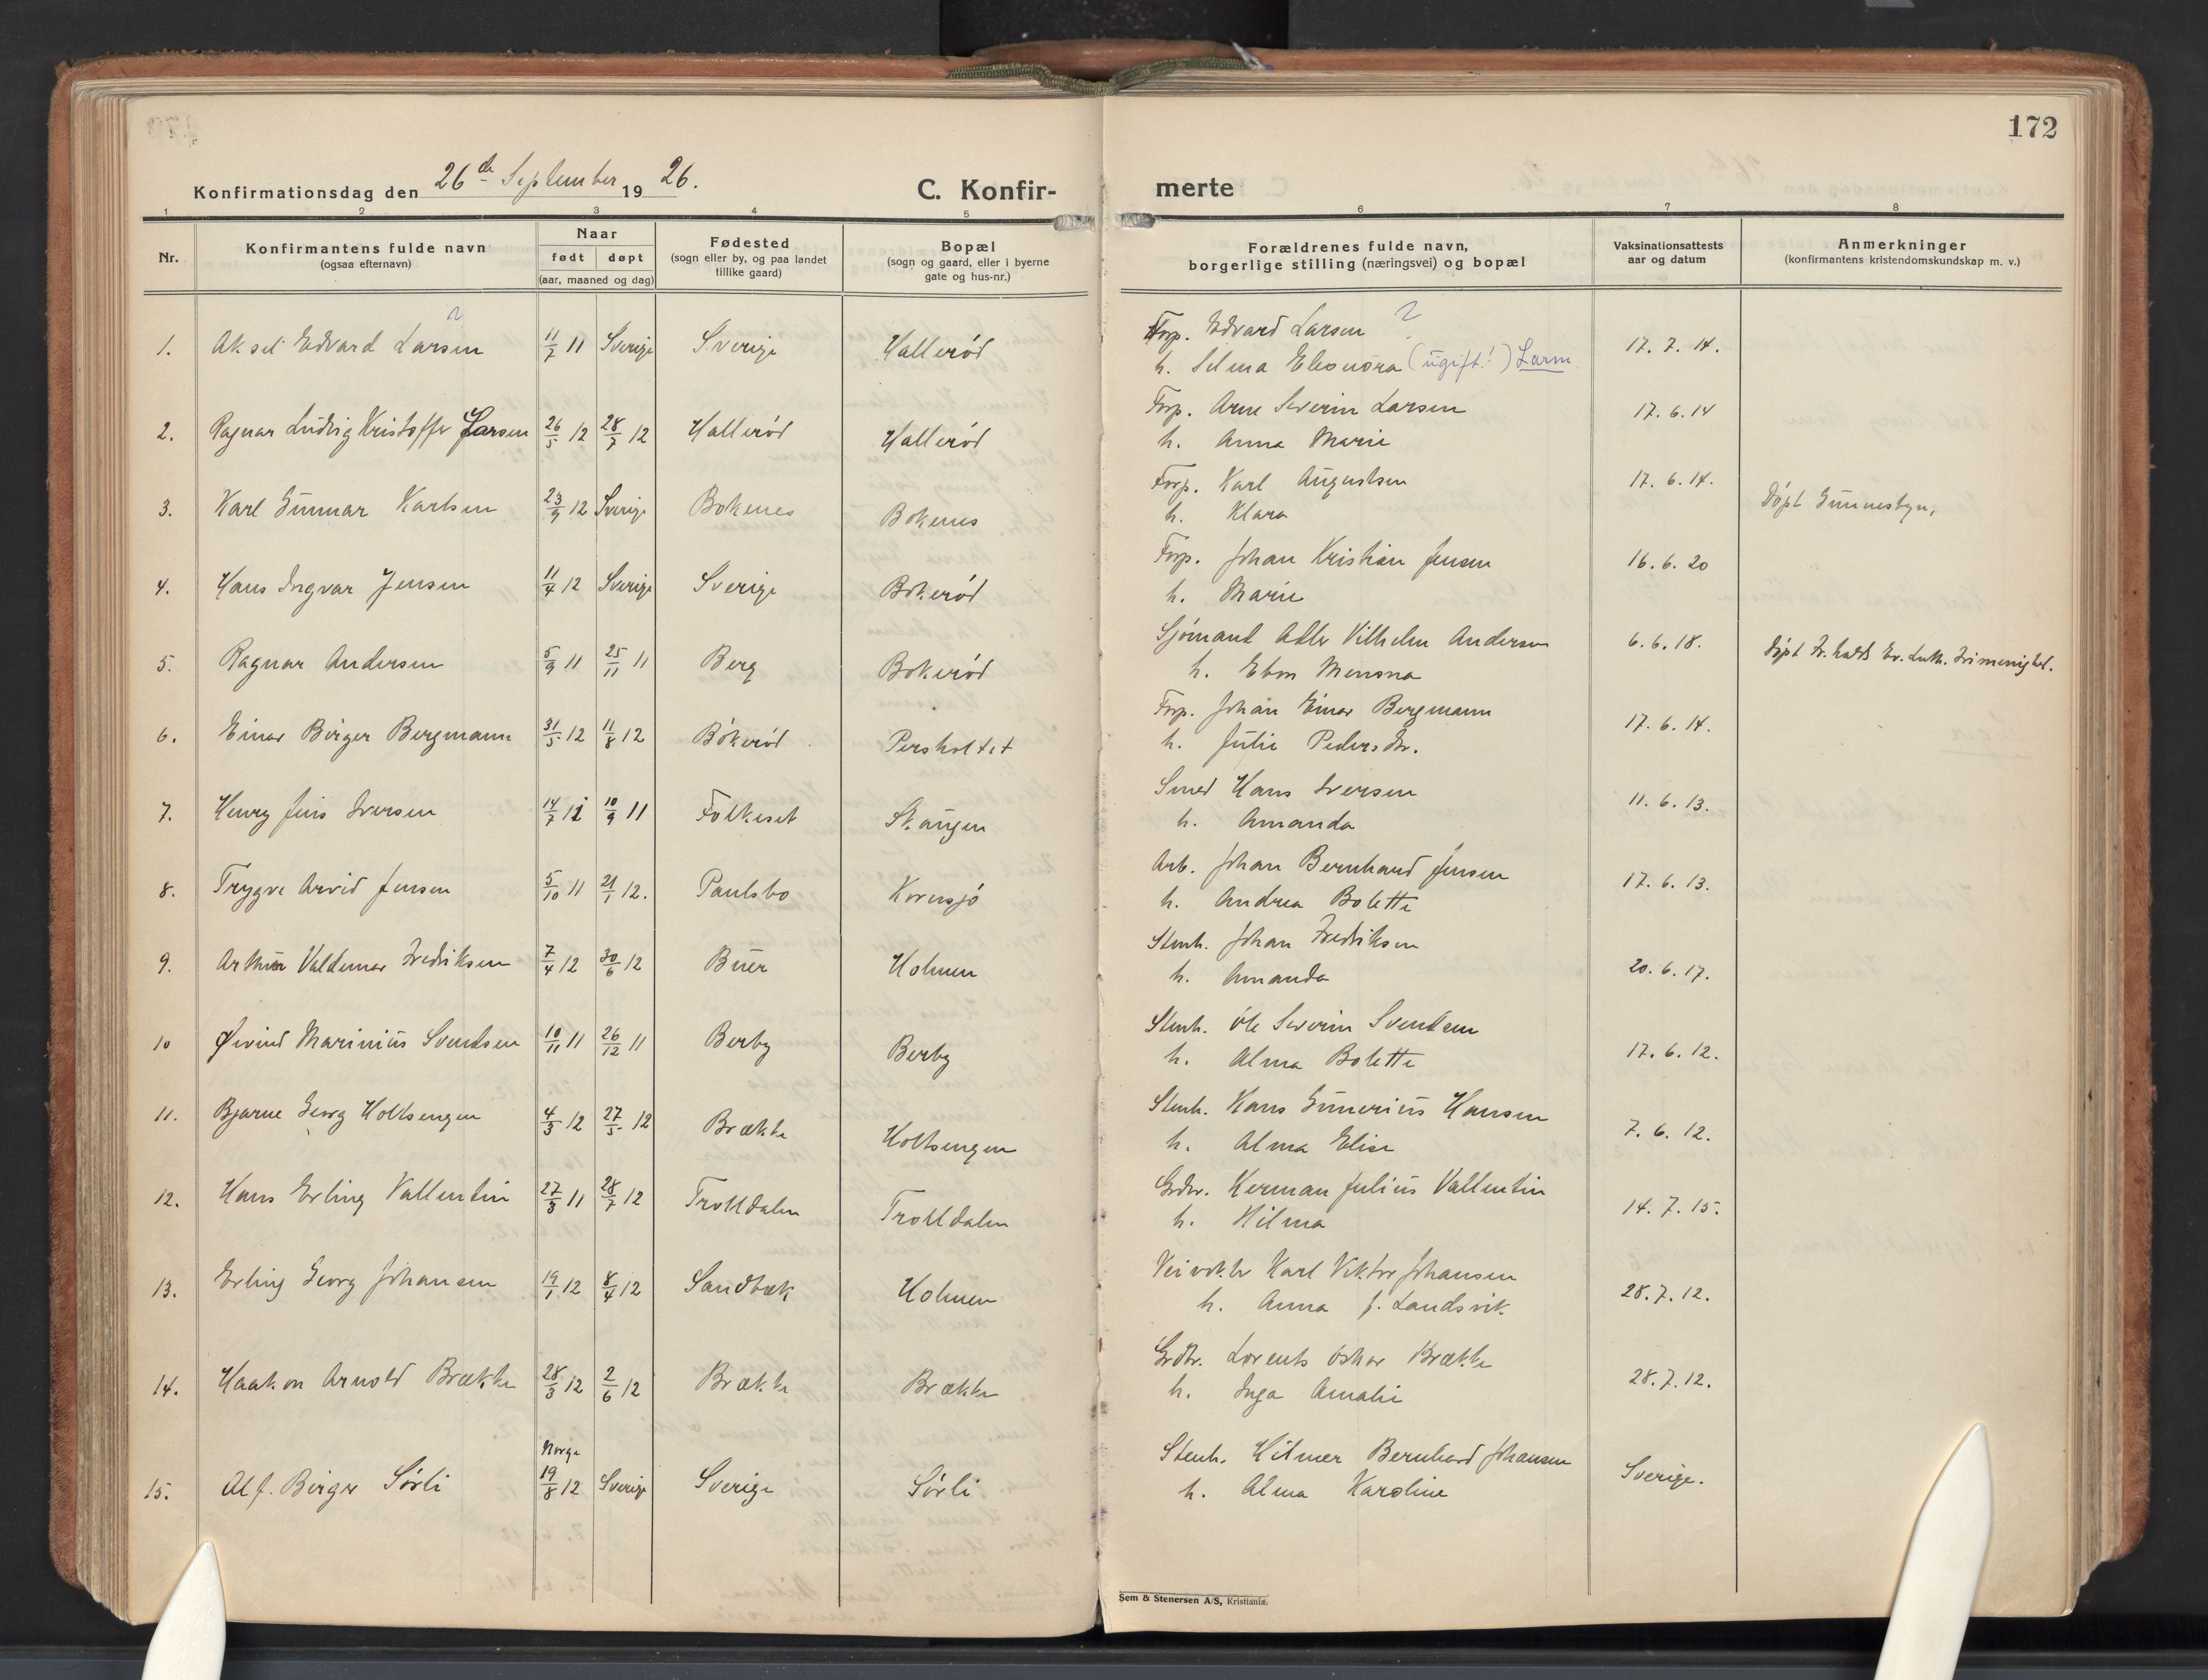 172
Konfirmationsdag den 26de September 1926.
C. Konfir-
merte
1 2 3 4 5 6 7 8
Nr.
Konfirmantens fulde navn
(ogsaa efternavn)
Naar
født døpt
(aar, maaned og dag)
Fødested
(sogn eller by, og paa landet
tillike gaard)
Bopæl
(sogn og gaard, eller i byerne
gate og hus-nr.)
Forældrenes fulde navn,
borgerlige stilling (næringsvei) og bopæl
Vaksinationsattests
aar og datum
Anmerkninger
(konfirmantens kristendomskundskap m. v.)
1. Aksel Edvard Larsen 11/7 11 Sverige Sverige Hallerød
Forp. Edvard Larsen ?
h. Selma Eleonora (ugift!) 17. 7. 14.
2. Ragnar Ludvig Kristoffer Larsen 26/5 12 28/7 12 Hallerød Hallerød
Forp. Arne Severin Larsen
h. Anna Marie 17. 6. 14
3. Karl Gunnar Karlsen 23/9 12 Sverige Bokenes Bokenes
Forp. Karl Augustsen
h. Klara 17. 6. 14. Døpt Gunnesbyn,
4. Hans Ingvar Jensen 11/4 12 Sverige Sverige Bokerød
Forp. Johan Kristian Jensen
h. Marie 16. 6. 20
5. Ragnar Andersen 5/9 11 25/11 11 Berg Bokerød
Sjømand Adler Vilhelm Andersen
h. 6. 6. 18. Døpt Fr.halds Ev. Luth. Frimenighed.
6. Einar Birger Bergmann 31/5 12 11/8 12 Bokerød Persholtet
Forp. Johan Einar Bergmann
h. Julie Pedersdr. 17. 6. 14.
7. Henry Jens Iversen 14/7 11 10/9 11 Folkeset Skaugen
Smed Hans Iversen
h. Amanda 11. 6. 13.
8. Trygve Arvid Jensen 5/10 11 21/1 12. Paulsbo Kornsjø
Arb. Johan Bernhard Jensen
h. Andrea Bolette 17. 6. 13.
9. Arthur Valdemar Fredriksen 7/4 12 30/6 12 Buer Holmen
Stenh. Johan Fredriksen
h. Amanda 20. 6. 17.
10 Øivind Marinius Svendsen 10/11 11 26/12 11 Berby Berby
Stenh. Ole Severin Svendsen
h. Alma Bolette 17. 6. 12.
11. Bjarne Georg Holtsengen 4/3 12 27/5 12 Brække Holtsengen
Stenh. Hans Gunerius Hansen
h. Alma Elise 7. 6. 12.
12. Hans Erling Vallentin 27/3 11 28/7 12 Trolldalen Trolldalen
Grdbr. Herman Julius Vallentin
h. Hilma 14. 7. 15.
13. Erling Georg Johansen 19/1 12 8/4 12 Sandbæk Holmen
Veivokter Karl Viktor Johansen
h. Anna J. Landsvik 28. 7. 12.
14. Haakon Arnold Brække 28/3 12 2/6 12 Brække Brække
Grdbr. Lorents Oskar Brække
h. Inga Amalie 28. 7. 12.
Norge
15. Alf. Birger Sørli 19/8 12 Sverige Sverige Sørli
Stenh. Hilmer Bernhard Johansen
h. Alma Karoline Sverige.
Sem & Stenersen A/S, Kristiania.